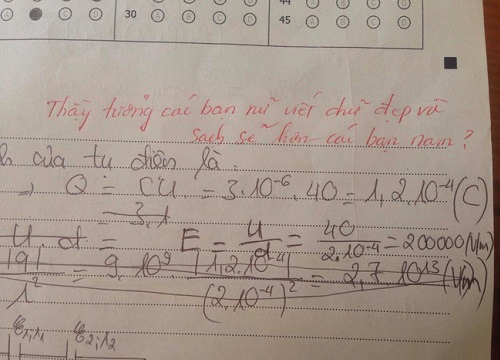 44
30 A B C D
45 A B C D
Thầy tưởng các bạn nữ viết chữ đẹp và
sạch sẽ hơn các bạn nam?
của tụ điện là
→ Q = CU = 3.10⁻⁶.40 = 1,2.10⁻⁴ (C)
= 3,1
U.d = E = U/d = 40/2.10⁻⁴ = 200000 (V/m)
|q|/1² = 9.10⁹.|1,2.10⁻⁴|/(2.10⁻⁴)² = 2,7.10¹³ (V/m)
ℰ₁,r₁ ℰ₂,r₂